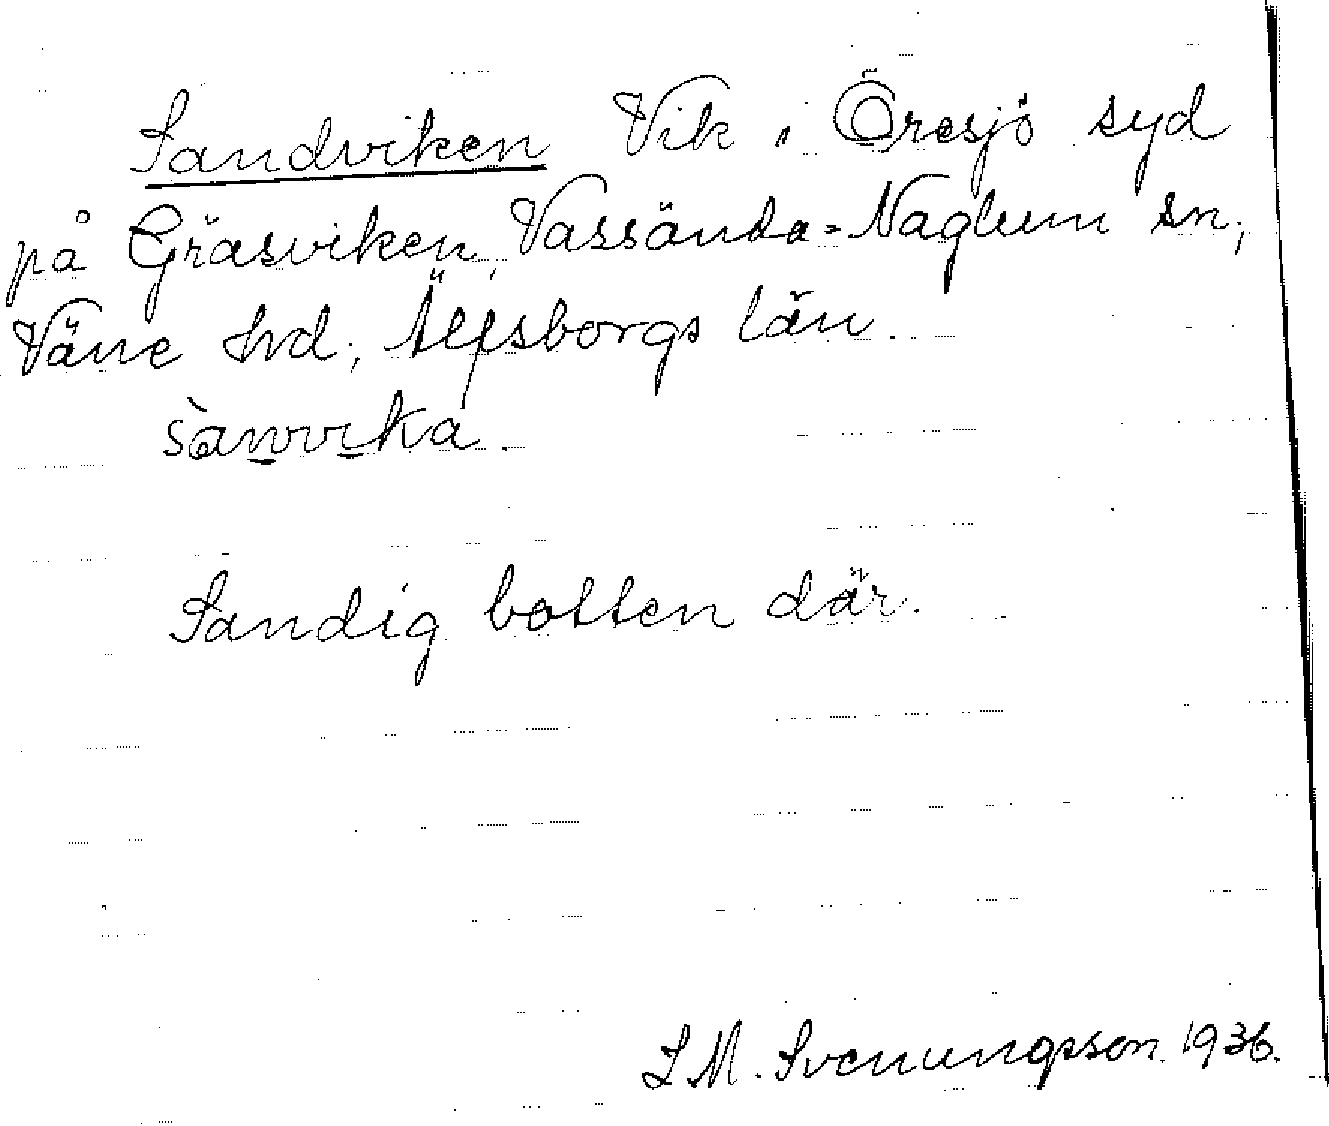 Sandviken Vik i Öresjö syd
på Gräsviken, Vassända-Naglum sn,
Väne hd, Älfsborgs län.
sànvika
Sandig botten där.
L M. Svenungsson. 1936.